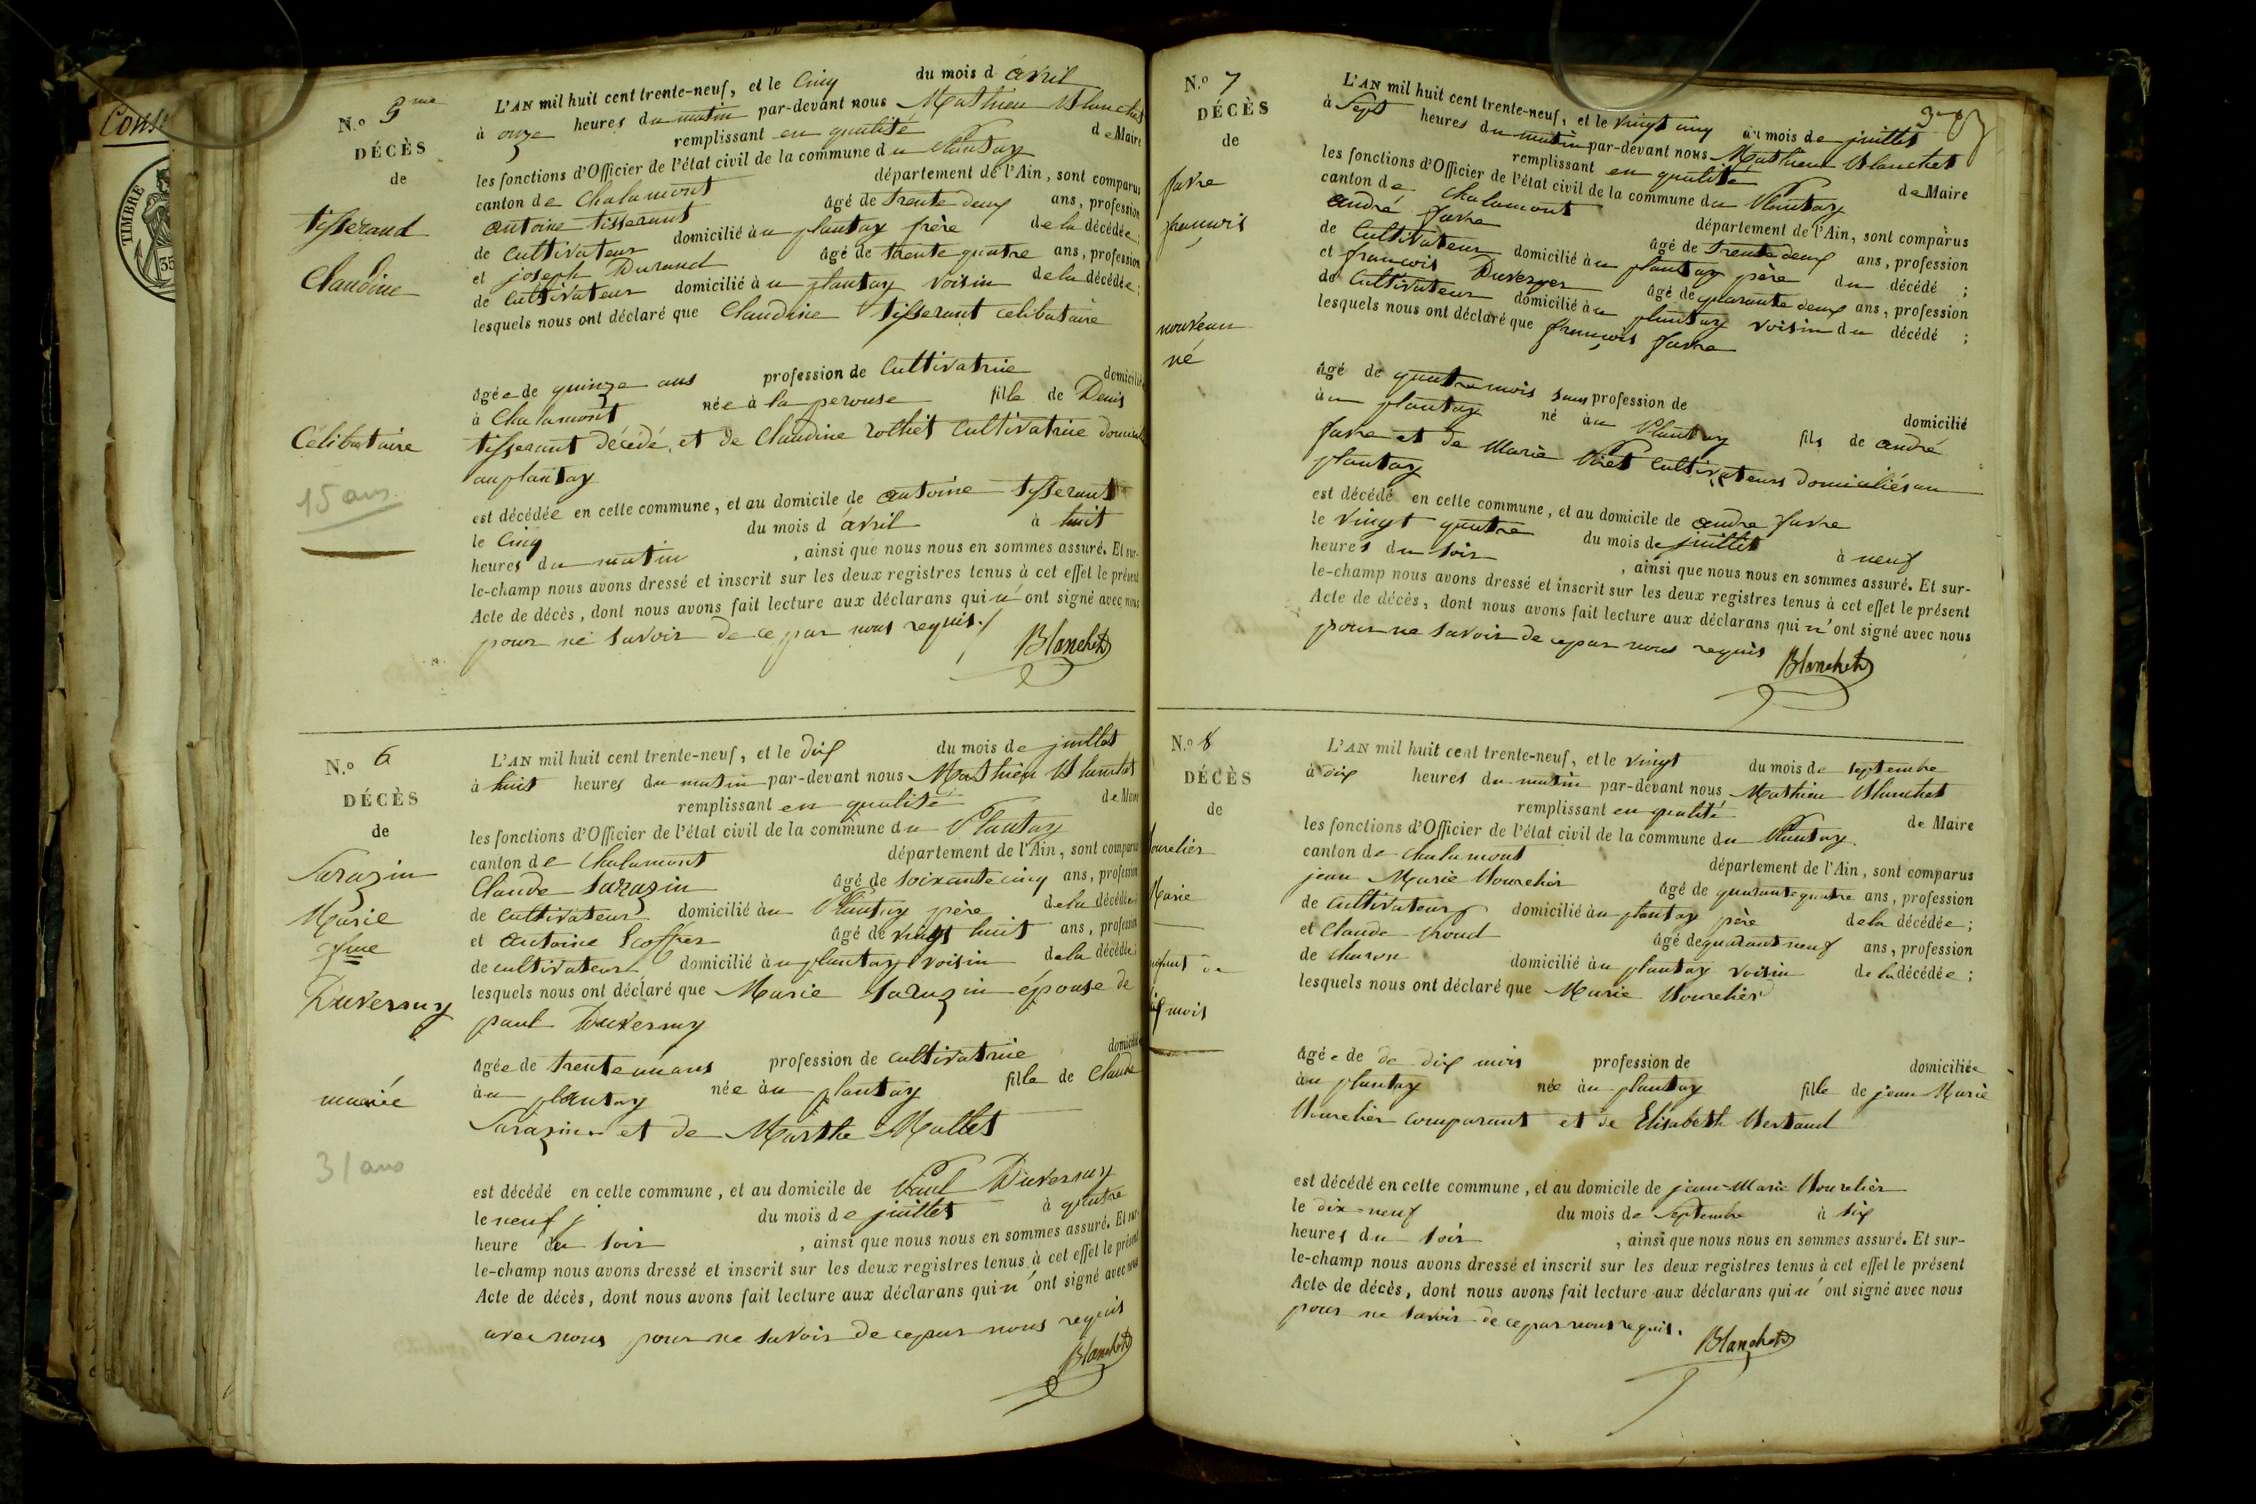 Cons
TIMBRE
35
N.o 5me
DÉCÈS
de
tisserand
Claudine
Célibataire
15 ans
L'AN mil huit cent trente-neuf, et le Cinq du mois d avril
à onze heures du matin par-devant nous Mathieu Blanchet
remplissant en qualité de Maire
les fonctions d'Officier de l'état civil de la commune du Plantay
canton de Chalamont département de l'Ain, sont comparus
antoine tisserant âgé de trente deux ans, profession
de Cultivateur domicilié au plantay frère de la décédée;
et joseph Durand âgé de trente quatre ans, profession
de Cultivateur domicilié au plantay voisin de la décédée;
lesquels nous ont déclaré que Claudine tisserant celibataire
âgée de quinze ans profession de Cultivatrice domicilié
à Chalamont née à la perouse fille de Denis
tisserant décédé, et de Claudine rothet Cultivatrice domicilié
au plantay
est décédée en cette commune, et au domicile de antoine tisserant
le Cinq du mois d avril à huit
heures du matin , ainsi que nous nous en sommes assuré. Et sur-
le-champ nous avons dressé et inscrit sur les deux registres tenus à cet effet le présent
Acte de décès, dont nous avons fait lecture aux déclarans qui n'ont signé avec nous
pour ne savoir de ce par nous requis./
Blanchet
N.o 6
DÉCÈS
de
Sarazin
Marie
fme
Duvernay
mariée
31 ans
L'AN mil huit cent trente-neuf, et le dix du mois de juillet
à huit heures du matin par-devant nous Mathieu Blanchet
remplissant en qualité de Maire
les fonctions d'Officier de l'état civil de la commune du Plantay
canton de Chalamont département de l'Ain, sont comparus
Claude Sarazin âgé de soixante cinq ans, profession
de Cultivateur domicilié au Plantay père de la décédée
et antoine Scoffier âgé de vingt huit ans, profession
de cultivateur domicilié au plantay voisin de la décédée;
lesquels nous ont déclaré que Marie Sarazin épouse de
paul Duvernay
âgée de trente un ans profession de cultivatrice domicilié
au plantay née au plantay fille de Claude
Sarazin et de Marthe Mallet
est décédé en cette commune, et au domicile de Paul Duvernay
le neuf j du mois de juillet à quatre
heure du soir , ainsi que nous nous en sommes assuré. Et sur-
le-champ nous avons dressé et inscrit sur les deux registres tenus à cet effet le présent
Acte de décès, dont nous avons fait lecture aux déclarans qui n'ont signé avec nous
avec nous pour ne savoir de ce par nous requis
Blanchet
N.o 7
DÉCÈS
de
favre
françois
nouveau
né
L'AN mil huit cent trente-neuf, et le vingt cinq du mois de juillet
à Sept heures du matin par-devant nous Mathieu Blanchet
remplissant en qualité de Maire
les fonctions d'Officier de l'état civil de la commune du Plantay
canton de Chalamont département de l'Ain, sont comparus
andré favre âgé de trente deux ans, profession
de Cultivateur domicilié au plantay père du décédé ;
et françois Duverger âgé de quarante deux ans, profession
de Cultivateur domicilié au plantay voisin du décédé ;
lesquels nous ont déclaré que françois favre
âgé de quatre mois sans profession de domicilié
au plantay né au Plantay fils de andré
favre et de Marie Piret Cultivateurs domiciliés au
plantay
est décédé en cette commune, et au domicile de andre favre
le vingt quatre du mois de juillet à neuf
heures du soir , ainsi que nous nous en sommes assuré. Et sur-
le-champ nous avons dressé et inscrit sur les deux registres tenus à cet effet le présent
Acte de décès, dont nous avons fait lecture aux déclarans qui n'ont signé avec nous
pour ne savoir de ce par nous requis
Blanchet
N.o 8
DÉCÈS
de
ourelier
Marie
enfant de
dix mois
L'AN mil huit cent trente-neuf, et le vingt du mois de septembre
à dix heures du matin par-devant nous Mathieu Blanchet
remplissant en qualité de Maire
les fonctions d'Officier de l'état civil de la commune du Plantay
canton de chalamont département de l'Ain, sont comparus
jean Marie Bourelier âgé de quarante quatre ans, profession
de Cultivateur domicilié au plantay père de la décédée;
et Claude âgé de quarant neuf ans, profession
de charon domicilié au plantay voisin de la décédée;
lesquels nous ont déclaré que Marie Bourelier
âgée de de dix mois profession de domiciliée
au plantay née au plantay fille de jean Marie
Bourelier comparant et de Elisabeth Bertaud
est décédé en cette commune, et au domicile de jean-Marie Bourelier
le dix-neuf du mois de Septembre à six
heures du soir , ainsi que nous nous en sommes assuré. Et sur-
le-champ nous avons dressé et inscrit sur les deux registres tenus à cet effet le présent
Acte de décès, dont nous avons fait lecture aux déclarans qui n'ont signé avec nous
pour ne savoir de ce par nous requis.
Blanchet